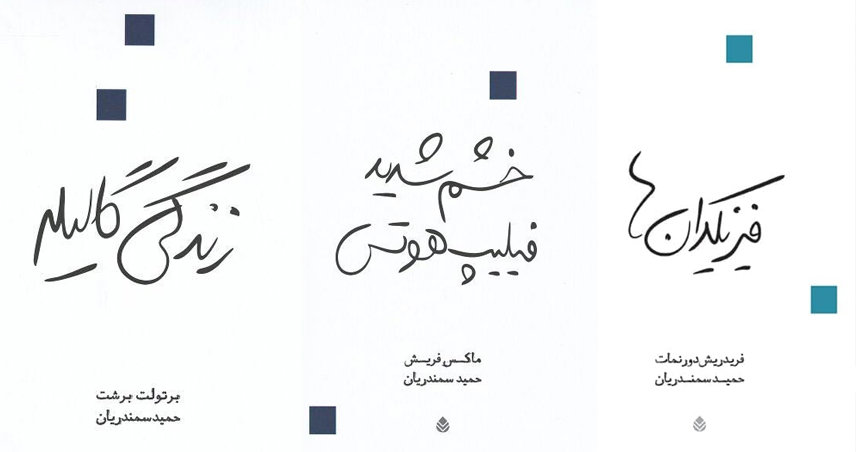 زندگی گالیله
برتولت برشت
حمید سمندریان
خشم شدید
فیلیپ هوتس
ماکس فریش
حمید سمندریان
فیزیکدان ها
فریدریش دورنمات
حمید سمندریان